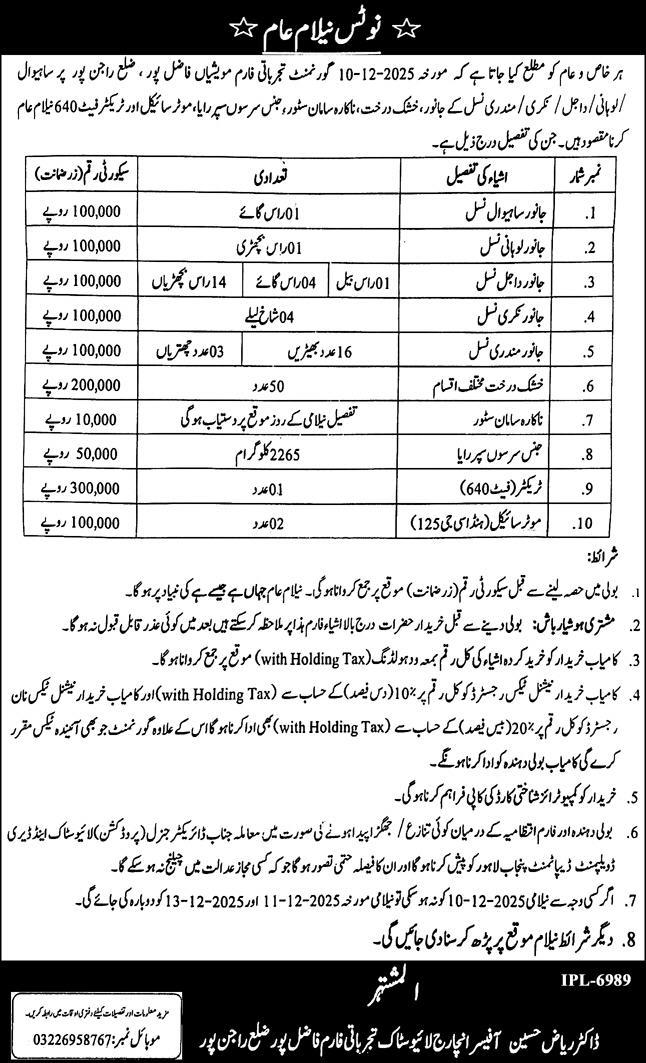 ☆ نوٹس نیلام عام ☆
ہر خاص و عام کو مطلع کیا جاتا ہے کہ مورخہ 10-12-2025 گورنمنٹ تجرباتی فارم مویشیاں فاضل پور، ضلع راجن پور پر ساہیوال
/لوہانی/داجل/نکری/مندری نسل کے جانور، خشک درخت، ناکارہ سامان سٹور، جنس سرسوں سپر رایا، موٹر سائیکل اور ٹریکٹر فیٹ 640 نیلام عام
کرنا مقصود ہیں۔ جن کی تفصیل درج ذیل ہے۔
نمبر شمار اشیاء کی تفصیل تعدادی سیکورٹی رقم (زر ضمانت)
1. جانور ساہیوال نسل 01 راس گائے 100,000 روپے
2. جانور لوہانی نسل 01 راس بچھڑی 100,000 روپے
3. جانور داجل نسل 01 راس بیل 04 راس گائے 14 راس بچھڑیاں 100,000 روپے
4. جانور نکری نسل 04 شاخ لیلے 100,000 روپے
5. جانور مندری نسل 16 عدد بھیڑیں 03 عدد چھتریاں 100,000 روپے
6. خشک درخت مختلف اقسام 50 عدد 200,000 روپے
7. ناکارہ سامان سٹور تفصیل نیلامی کے روز موقع پر دستیاب ہوگی 10,000 روپے
8. جنس سرسوں سپر رایا 2265 کلوگرام 50,000 روپے
9. ٹریکٹر (فیٹ 640) 01 عدد 300,000 روپے
10. موٹر سائیکل (ہنڈا سی جی 125) 02 عدد 100,000 روپے
شرائط:
1. بولی میں حصہ لینے سے قبل سیکورٹی رقم (زر ضمانت) موقع پر جمع کروانا ہوگی۔ نیلام عام جہاں ہے جیسے ہے کی بنیاد پر ہوگا۔
2. مشتری ہوشیار باش: بولی دینے سے قبل خریدار حضرات درج بالا اشیاء فارم ہذا پر ملاحظہ کر سکتے ہیں بعد میں کوئی عذر قابل قبول نہ ہوگا۔
3. کامیاب خریدار کو خرید کردہ اشیاء کی کل رقم بمعہ ود ہولڈنگ (with Holding Tax) موقع پر جمع کروانا ہوگا۔
4. کامیاب خریدار نیشنل ٹیکس رجسٹرڈ کو کل رقم پر 10٪ (دس فیصد) کے حساب سے (with Holding Tax) اور کامیاب خریدار نیشنل ٹیکس نان
رجسٹرڈ کو کل رقم پر 20٪ (بیس فیصد) کے حساب سے (with Holding Tax) بھی ادا کرنا ہوگا اس کے علاوہ گورنمنٹ جو بھی آئیندہ ٹیکس مقرر
کرے گی کامیاب بولی دہندہ کو ادا کرنا ہونگے۔
5. خریدار کو کمپیوٹرائز شناختی کارڈ کی کاپی فراہم کرنا ہوگی۔
6. بولی دہندہ اور فارم انتظامیہ کے درمیان کوئی تنازع / جھگڑا پیدا ہونے کی صورت میں معاملہ جناب ڈائریکٹر جنرل (پروڈکشن) لائیوسٹاک اینڈ ڈیری
ڈویلپمنٹ ڈیپارٹمنٹ پنجاب لاہور کو پیش کرنا ہوگا اور ان کا فیصلہ حتمی تصور ہوگا جو کہ کسی مجاز عدالت میں چیلنج نہ ہو سکے گا۔
7. اگر کسی وجہ سے نیلامی 10-12-2025 کو نہ ہو سکی تو نیلامی مورخہ 11-12-2025 اور 13-12-2025 کو دوبارہ کی جائے گی۔
8. دیگر شرائط نیلام موقع پر پڑھ کر سنا دی جائیں گی۔
IPL-6989
المشتہر
ڈاکٹر ریاض حسین آفیسر انچارج لائیوسٹاک تجرباتی فارم فاضل پور ضلع راجن پور
مزید معلومات اور تفصیلات کیلئے دفتری اوقات میں رابطہ کریں۔
موبائل نمبر: 03226958767